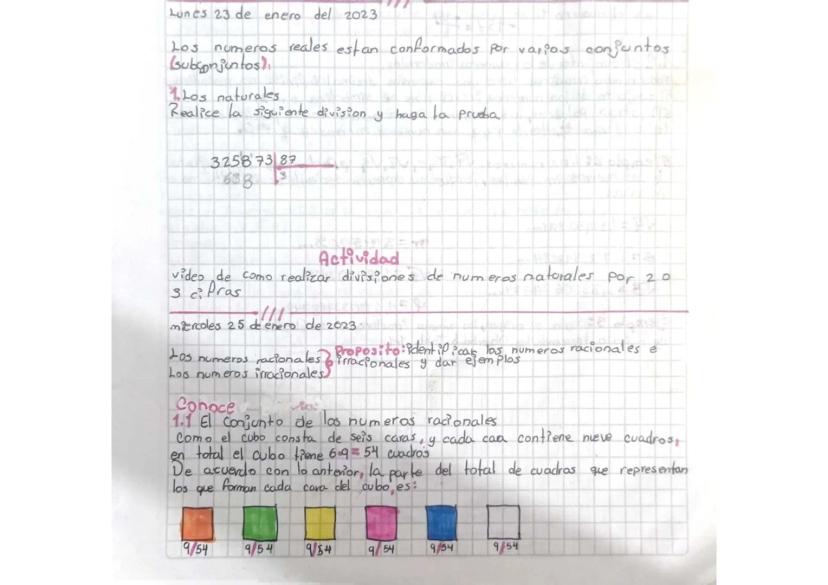 Lunes 23 de enero del 2023
Los numeros reales estan conformados por varios conjuntos
(subconjuntos).
1. Los naturales
Realice la siguiente division y haga la prueba
325873 87
638 3
Actividad
video de como realizar divisiones de numeros naturales por 2 o
3 cifras
miercoles 25 de enero de 2023
Los numeros racionales
Los numeros irracionales
Proposito: identificar los numeros racionales e
irracionales y dar ejemplos
Conoce
1.1 El conjunto de los numeros racionales
Como el cubo consta de seis caras, y cada caa contiene nueve cuadros,
en total el cubo tiene 6·9 = 54 cuadros
De acuerdo con lo anterior, la parte del total de cuadros que representan
los que forman cada cara del cubo, es:
9/54 9/54 9/54 9/54 9/54 9/54